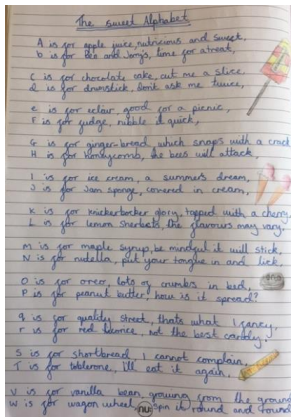 The sweet Alphabet
A is for apple juice, nutricious and sweet,
b is for Ben and Jerry's, time for a treat,
C is for chocolate cake, cut me a slice,
d is for drumstick, don't ask me twice,
e is for eclair, good for a picnic,
F is for fudge, nibble it quick,
G is for ginger-bread, which snaps with a crack
H is for honeycomb, the bees will attack,
I is for ice cream, a summer's dream,
J is for Jam sponge, covered in cream,
K is for knickerbocker glory, topped with a cherry,
L is for lemon sherbets, the flavours may vary.
M is for maple syrup, be mindful it will stick,
N is for nutella, put your tongue in and lick,
O is for oreo, lots of crumbs in bed,
P is for peanut butter, how is it spread?
q is for quality street, thats what I fancy,
r is for red the not the best candy,
S is for shortbread I cannot complain,
T is for toblerone, i'll eat it again,
V is for vanilla bean, growing from the ground
W is for wagon wheel, spin it round and round